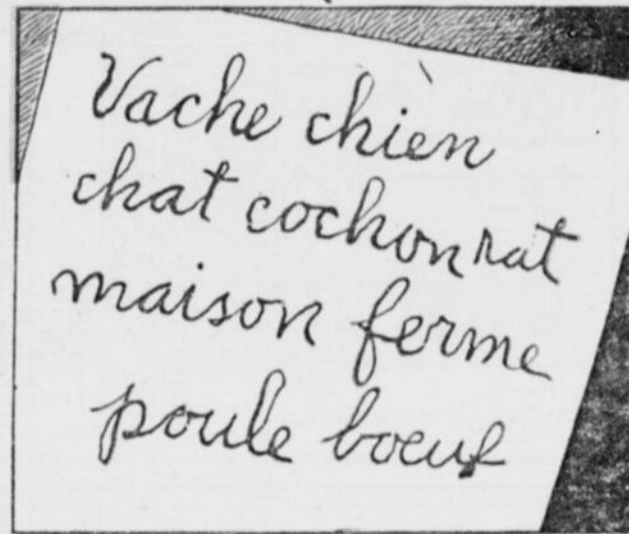 Vache chièn
chat cochon rat
maison ferme
poule boeuf